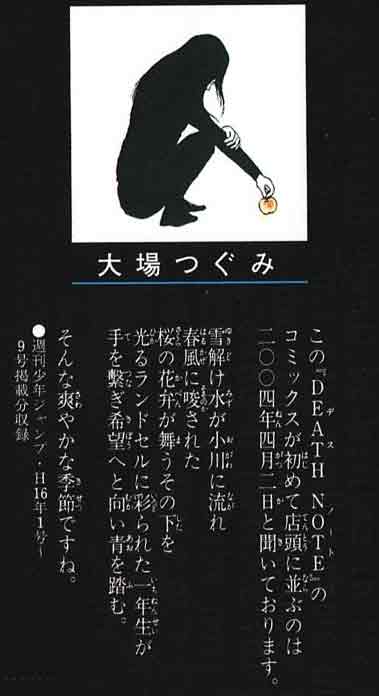 大場つぐみ
この『DEATH NOTE』の
コミックスが初めて店頭に並ぶのは
二〇〇四年四月二日と聞いております。
雪解け水が小川に流れ
春風に唆された
桜の花弁が舞うその下を
光るランドセルに彩られた一年生が
手を繋ぎ希望へと向い青を踏む。
そんな爽やかな季節ですね。
●週刊少年ジャンプ・H16年1号〜
9号掲載分収録